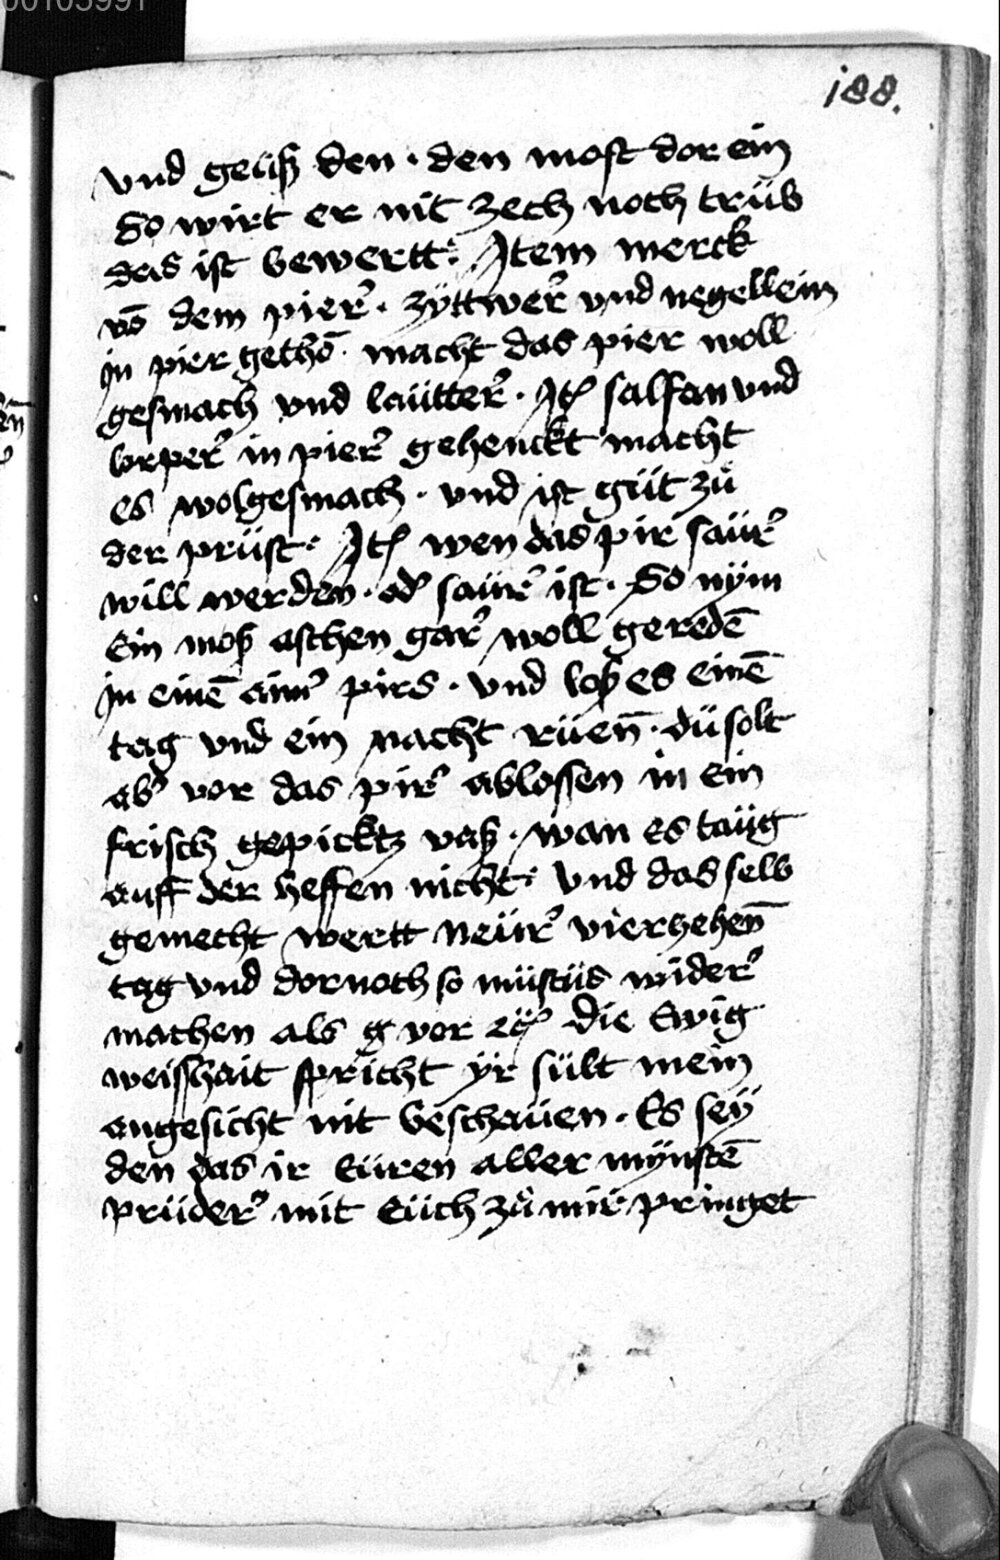 00105991
188.
vnd geüß den · den most dor ein
So wirt er nit zech noch trüb
das ist bewertt : Item merck
vō dem pier · zyttwer vnd negellein
in pier gethō · macht das pier woll
gesmach vnd laütter · Itē salfan vnd
lorper in pier gehenckt macht
es wolgesmach · vnd ist güt zü
der prüst : Itē wen das pir saür
will werden · od saür ist · So nÿm
Ein moß aschen gar woll geredē
in einē aimr pirs · vnd loß es einē
tag vnd ein nacht rüen̄ · dü solt
ab vor das pir ablossen in ein
frisch gepicktz vaß · wan es taüg
auff der heffen nicht : vnd das selb
gemecht wertt neür vierzehen̄
tag vnd dornoch so müstüs wider
machen als g vor rc Die Ewig
weisshait spricht ÿr sült mein
angesicht nit beschaüen · Es seÿ
den das ir Eüren aller mÿnstē
prüder mit Eüch zü mir pringet